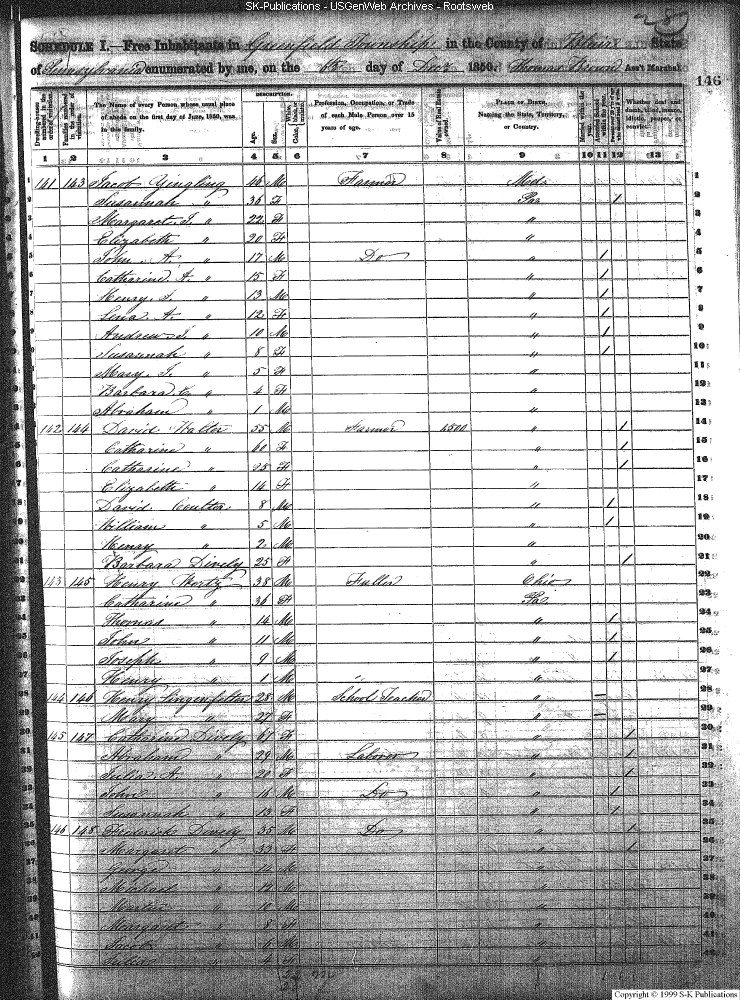 SK-Publications - USGenWeb Archives - Rootsweb
SCHEDULE I.—Free Inhabitants in Greenfield Township in the County of Blair State
of Pennsylvania enumerated by me, on the 6th day of Decr 1850. Thomas Brown Ass't Marshal.
146
DESCRIPTION.
Dwelling-houses numbered in the order of visitation.
Families numbered in the order of visitation.
The Name of every Person whose usual place of abode on the first day of June, 1850, was in this family.
Age.
Sex.
Profession, Occupation, or Trade of each Male Person over 15 years of age.
Value of Real Estate owned.
PLACE OF BIRTH. Naming the State, Territory, or Country.
Married within the year.
Whether deaf and dumb, blind, insane, idiotic, pauper, or convict.
1 2 3 4 5 6 7 8 9 10 11 12 13
1 141 143 Jacob Yingling 46 M Farmer Md 1
2 Susannah " 36 F Pa / 2
3 Margaret J. " 22 F " 3
4 Elizabeth " 20 F " 4
5 John A. " 17 M Do " / 5
6 Catharine A. " 15 F " / 6
7 Henry S. " 13 M " / 7
8 Lena A. " 12 F " / 8
9 Andrew J. " 10 M " / 9
10 Susannah " 8 F " / 10
11 Mary J. " 5 F " 11
12 Barbara C. " 4 F " 12
13 Abraham " 1 M " 13
14 142 144 David Walter 55 M Farmer 1500 " / 14
15 Catharine " 60 F " / 15
16 Catharine " 25 F " / 16
17 Elizabeth " 16 F " 17
18 David Coulter 8 M " / 18
19 William " 5 M " / 19
20 Henry " 2 M " 20
21 Barbara Dively 25 F " / 21
22 143 145 Henry Wertz 38 M Fuller Ohio 22
23 Catharine " 36 F Pa 23
24 Thomas " 14 M " / 24
25 John " 11 M " / 25
26 Joseph " 9 M " / 26
27 Henry " 1 M " 27
28 144 146 Henry Lingenfelter 28 M School Teacher " — 28
29 Mary " 27 F " — 29
30 145 147 Catharine Dively 61 F " / 30
31 Abraham " 29 M Laborer " / 31
32 Julia A " 20 F " / 32
33 John " 16 M Do " / 33
34 Susannah " 13 F " / 34
35 146 148 Frederick Dively 35 M Do " / 35
36 Margaret " 33 F " / 36
37 George " 14 M " 37
38 Michael " 12 M " 38
39 Martin " 10 M " 39
40 Margaret " 8 F " 40
41 Jacob " 6 M " 41
4 F " 42
Copyright © 1999 S-K Publications